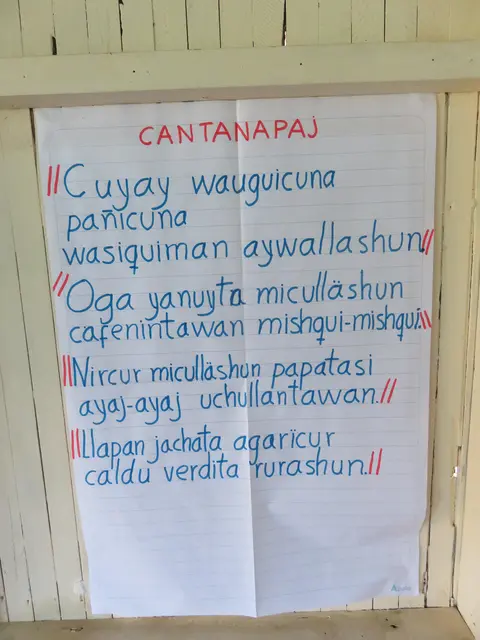 CANTANAPAJ
//Cuyay wauguicuna
pañicuna
wasiquiman aywallashun//
//Oga yanuyta miculläshun
cafenintawan mishqui-mishqui.\\
//Nircur miculläshun papatasi
ayaj-ayaj uchullantawan.//
//Llapan jachata agarïcur
caldu verdita rurashun.//